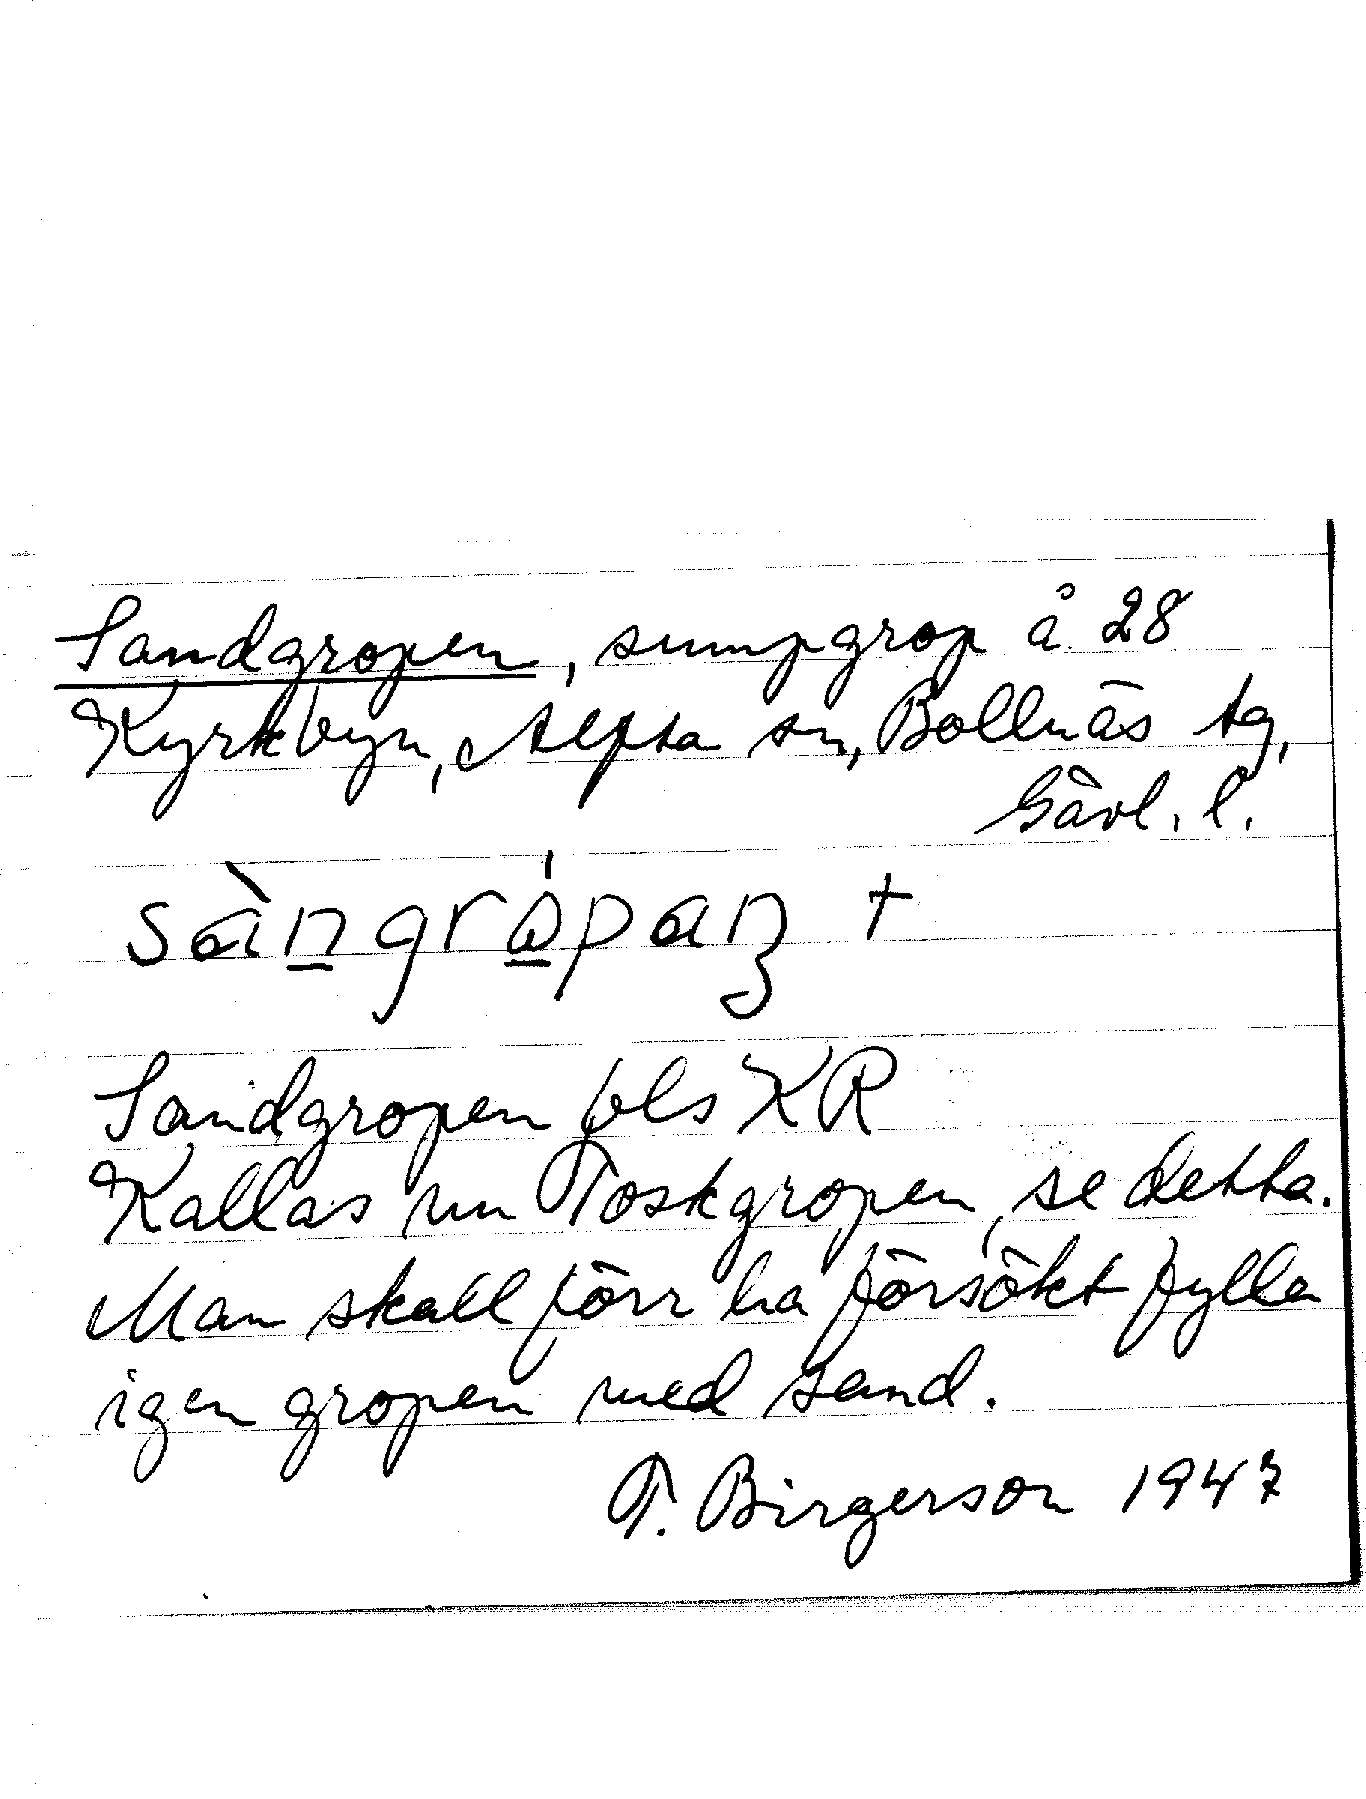 Sandgropen, sumpgrop å 28
Kyrkbyn, Alfta sn, Bollnäs tg,
Gävl. l.
sàngrópaŋ +
Sandgropen bls KR
Kallas nu Toskgropen, se detta.
Man skall förr ha försökt fylla
igen gropen med sand.
T. Birgerson 1947